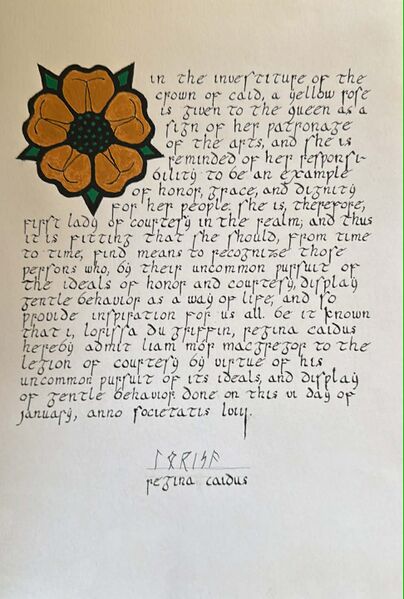 in the investiture of the
crown of caid, a yellow rose
is given to the queen as a
sign of her patronage
of the arts, and she is
reminded of her responsi-
bility to be an example
of honor, grace, and dignity
for her people. she is, therefore,
first lady of courtesy in the realm; and thus
it is fitting that she should, from time
to time, find means to recognize those
persons who, by their uncommon pursuit of
the ideals of honor and courtesy, display
gentle behavior as a way of life, and so
provide inspiration for us all. be it known
that i, lorissa du griffin, regina caidus
hereby admit liam mor macgregor to the
legion of courtesy by virtue of his
uncommon pursuit of its ideals, and display
of gentle behavior. done on this vi day of
january, anno societatis lviij.
ᛚᛟᚱᛁᛋᚨ
regina caidus